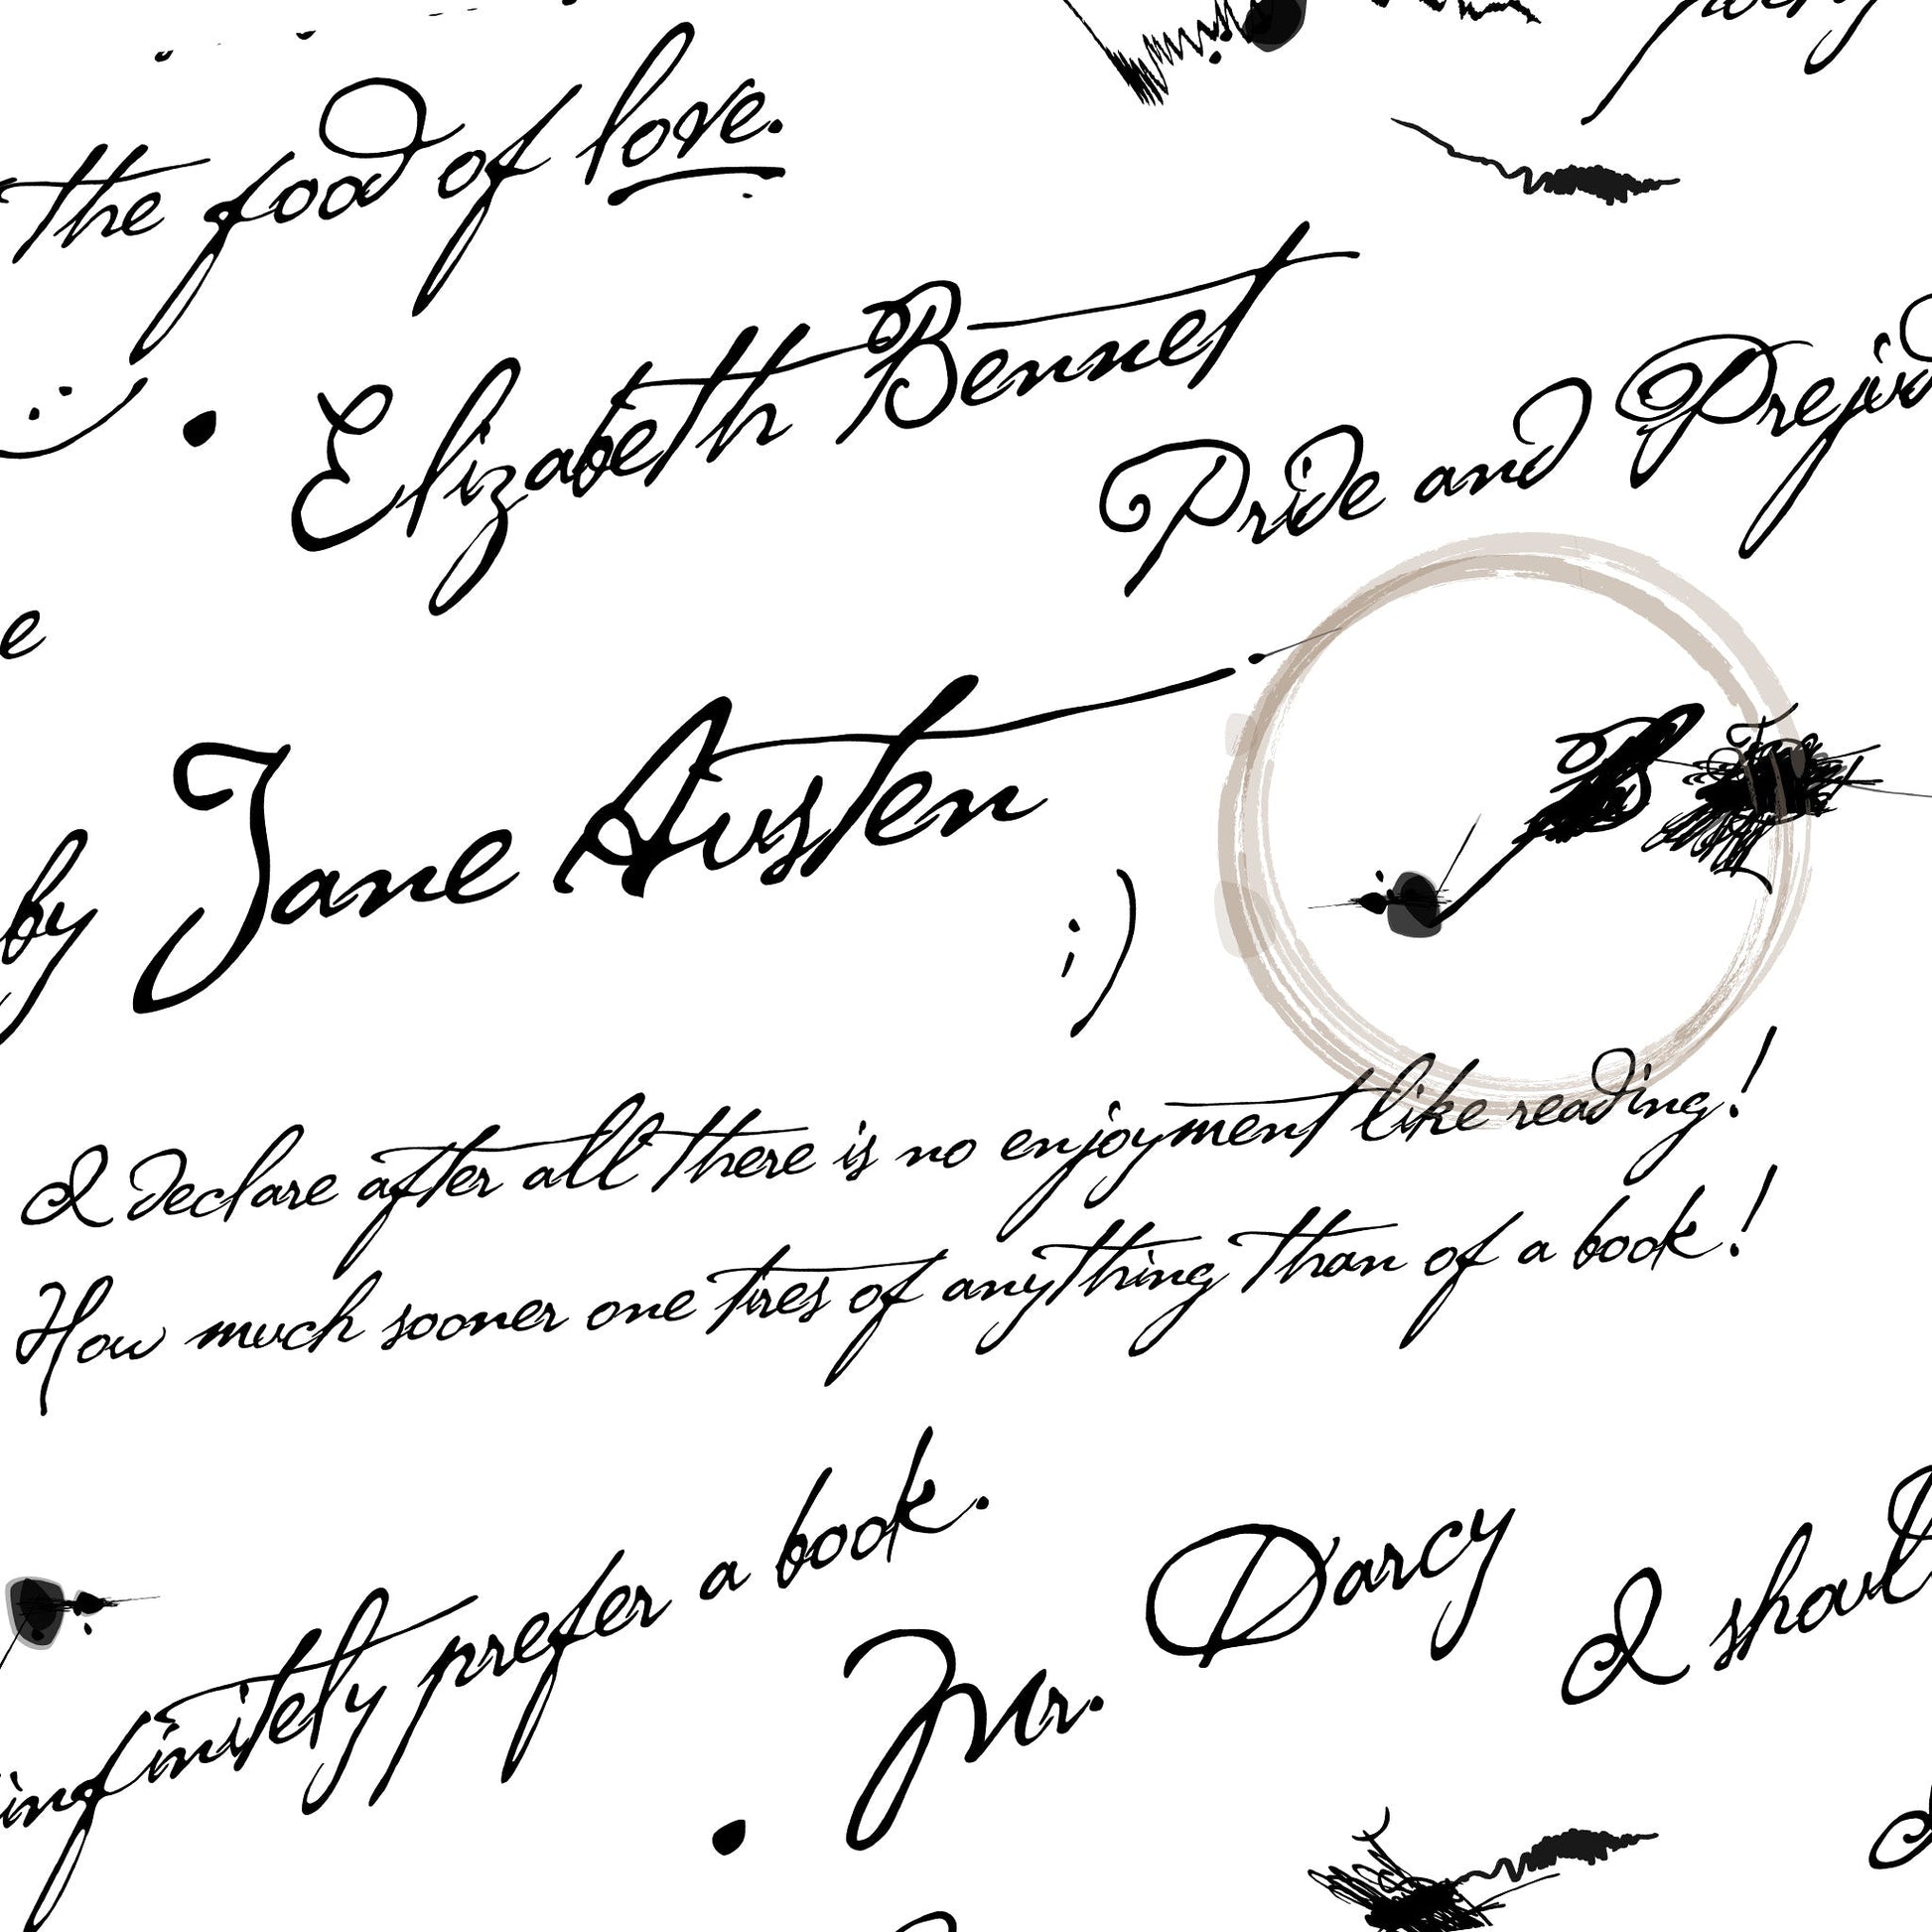 the food of love.
Elizabeth Bennet
Pride and
e
by Jane Austen
;)
I declare after all there is no enjoyment like reading!
How much sooner one tires of anything than of a book!
infinitely prefer a book.
Mr. Darcy
I shoul